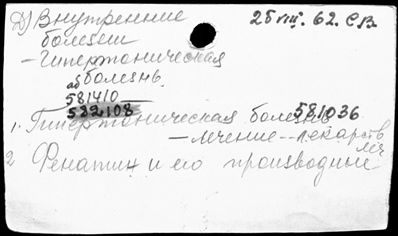 Д) Внутренние 25 VIII. 62. СВ.
болезни
– Гипертоническая
аб болезнь
581410
532108
1. Гипертоническая болезнь 581036
– лечение -- лекарств
леч
2 Фенатин и его производные